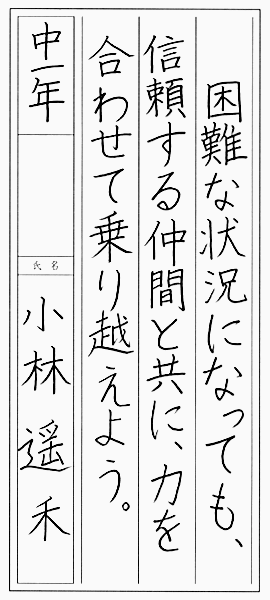 困難な状況になっても、
信頼する仲間と共に、力を
合わせて乗り越えよう。
中一年
氏名
小林 遥禾